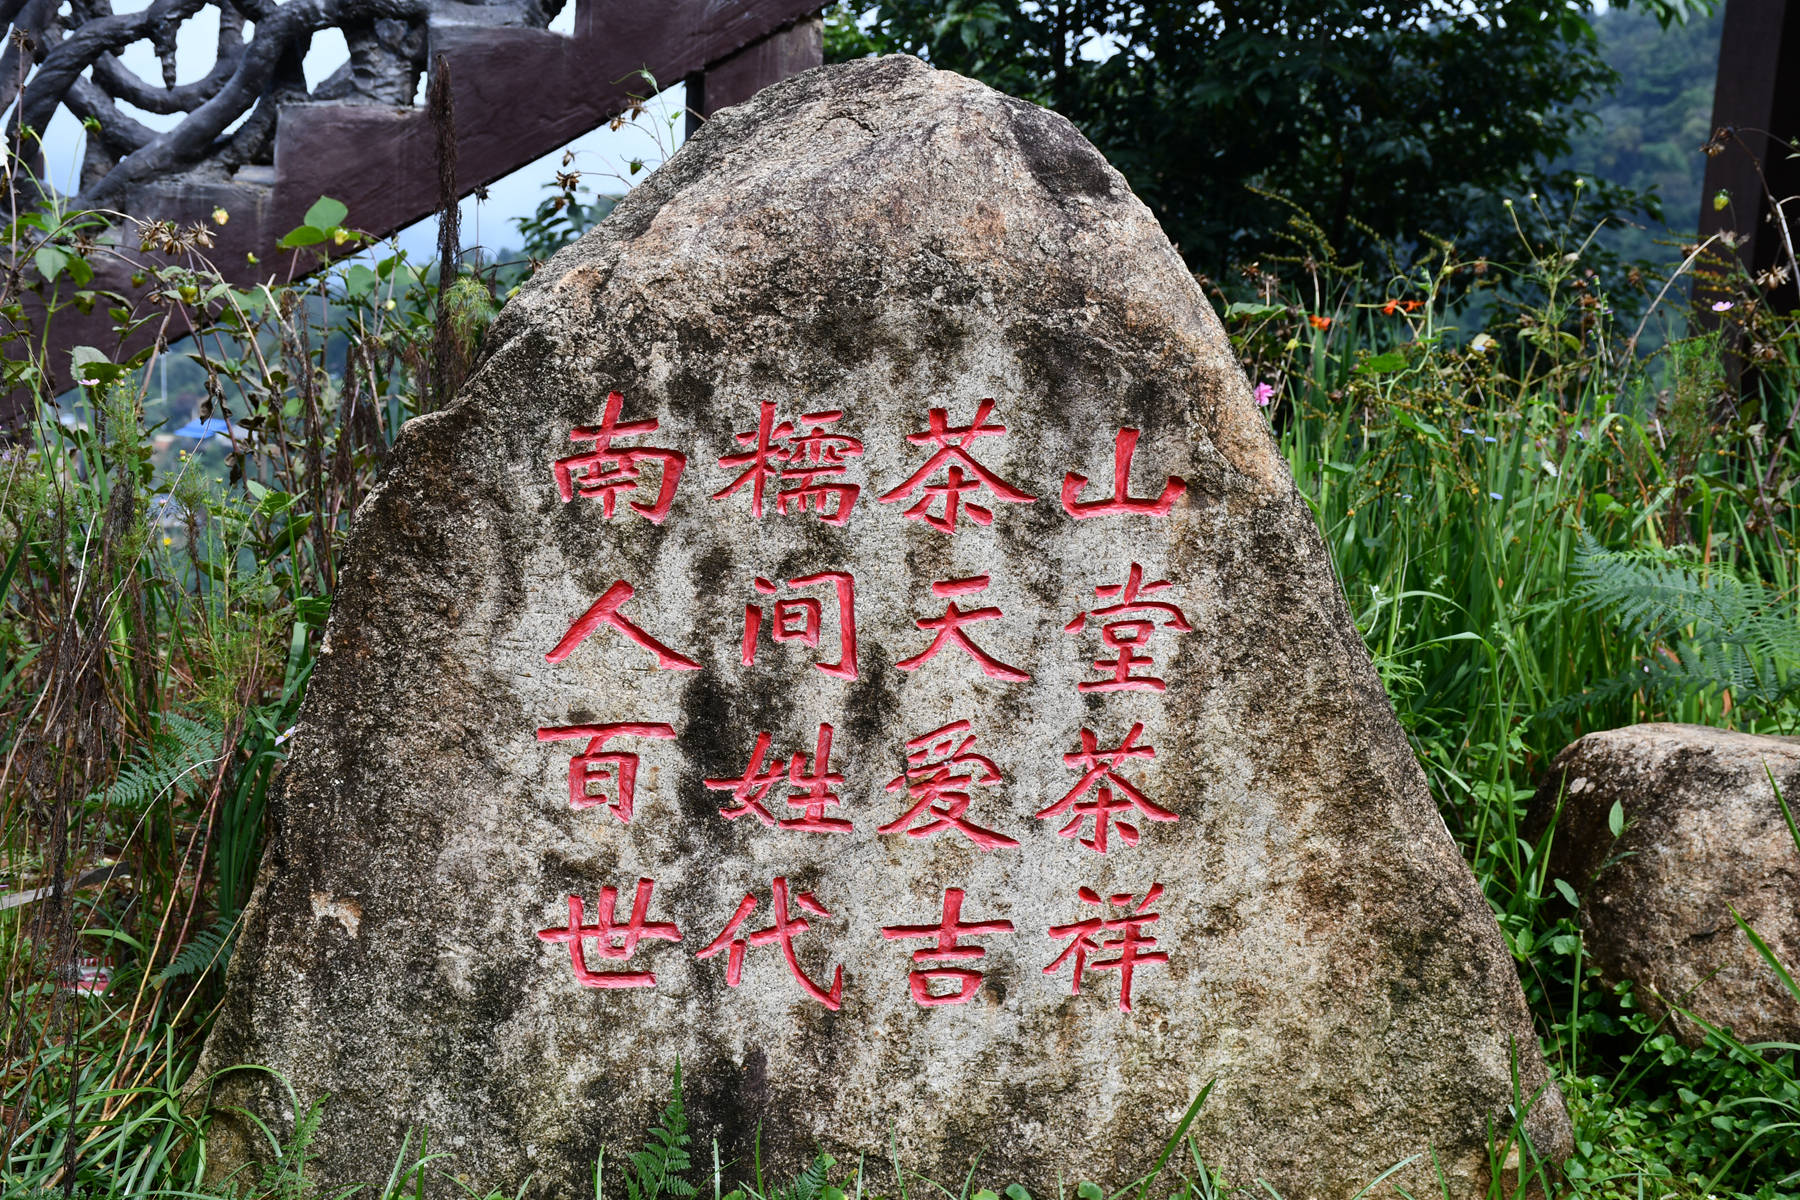 山堂茶祥
茶天爱吉
糯间姓代
南人百世